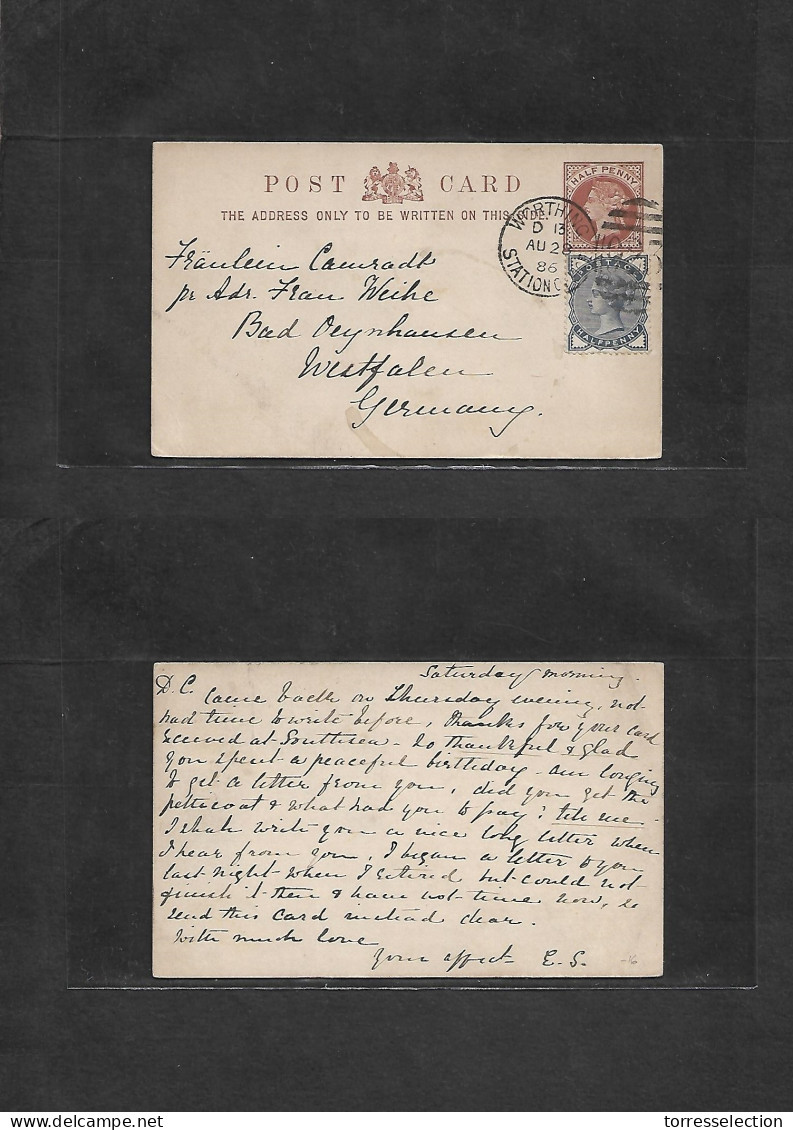 POST CARD
THE ADDRESS ONLY TO BE WRITTEN ON THIS SIDE.
HALF PENNY
WORTHING
D 13
AU 28
86
STATION
POSTAGE
HALFPENNY
Fräulein Camradt
pr Adr. Frau Weihe
Bad Oeynhausen
Westfalen
Germany.
Saturday morning.
D. C. Came back on Thursday evening, not
had time to write before, thanks for your card
received at Southsea - So thankful & glad
you spent a peaceful birthday - am longing
to get a letter from you, did you get the
petticoat & what had you to pay? tell me -
I shall write you a nice long letter when
I hear from you, I began a letter to you
last night when I retired but could not
finish it then & have not time now, so
send this card instead dear.
With much love
Your affect- E. S.
delcampe.net
torresselection